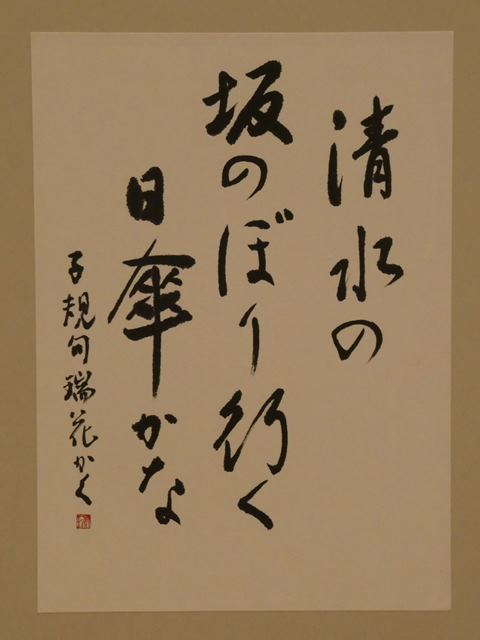 清水の
坂のぼり行く
日傘かな
子規句瑞花かく